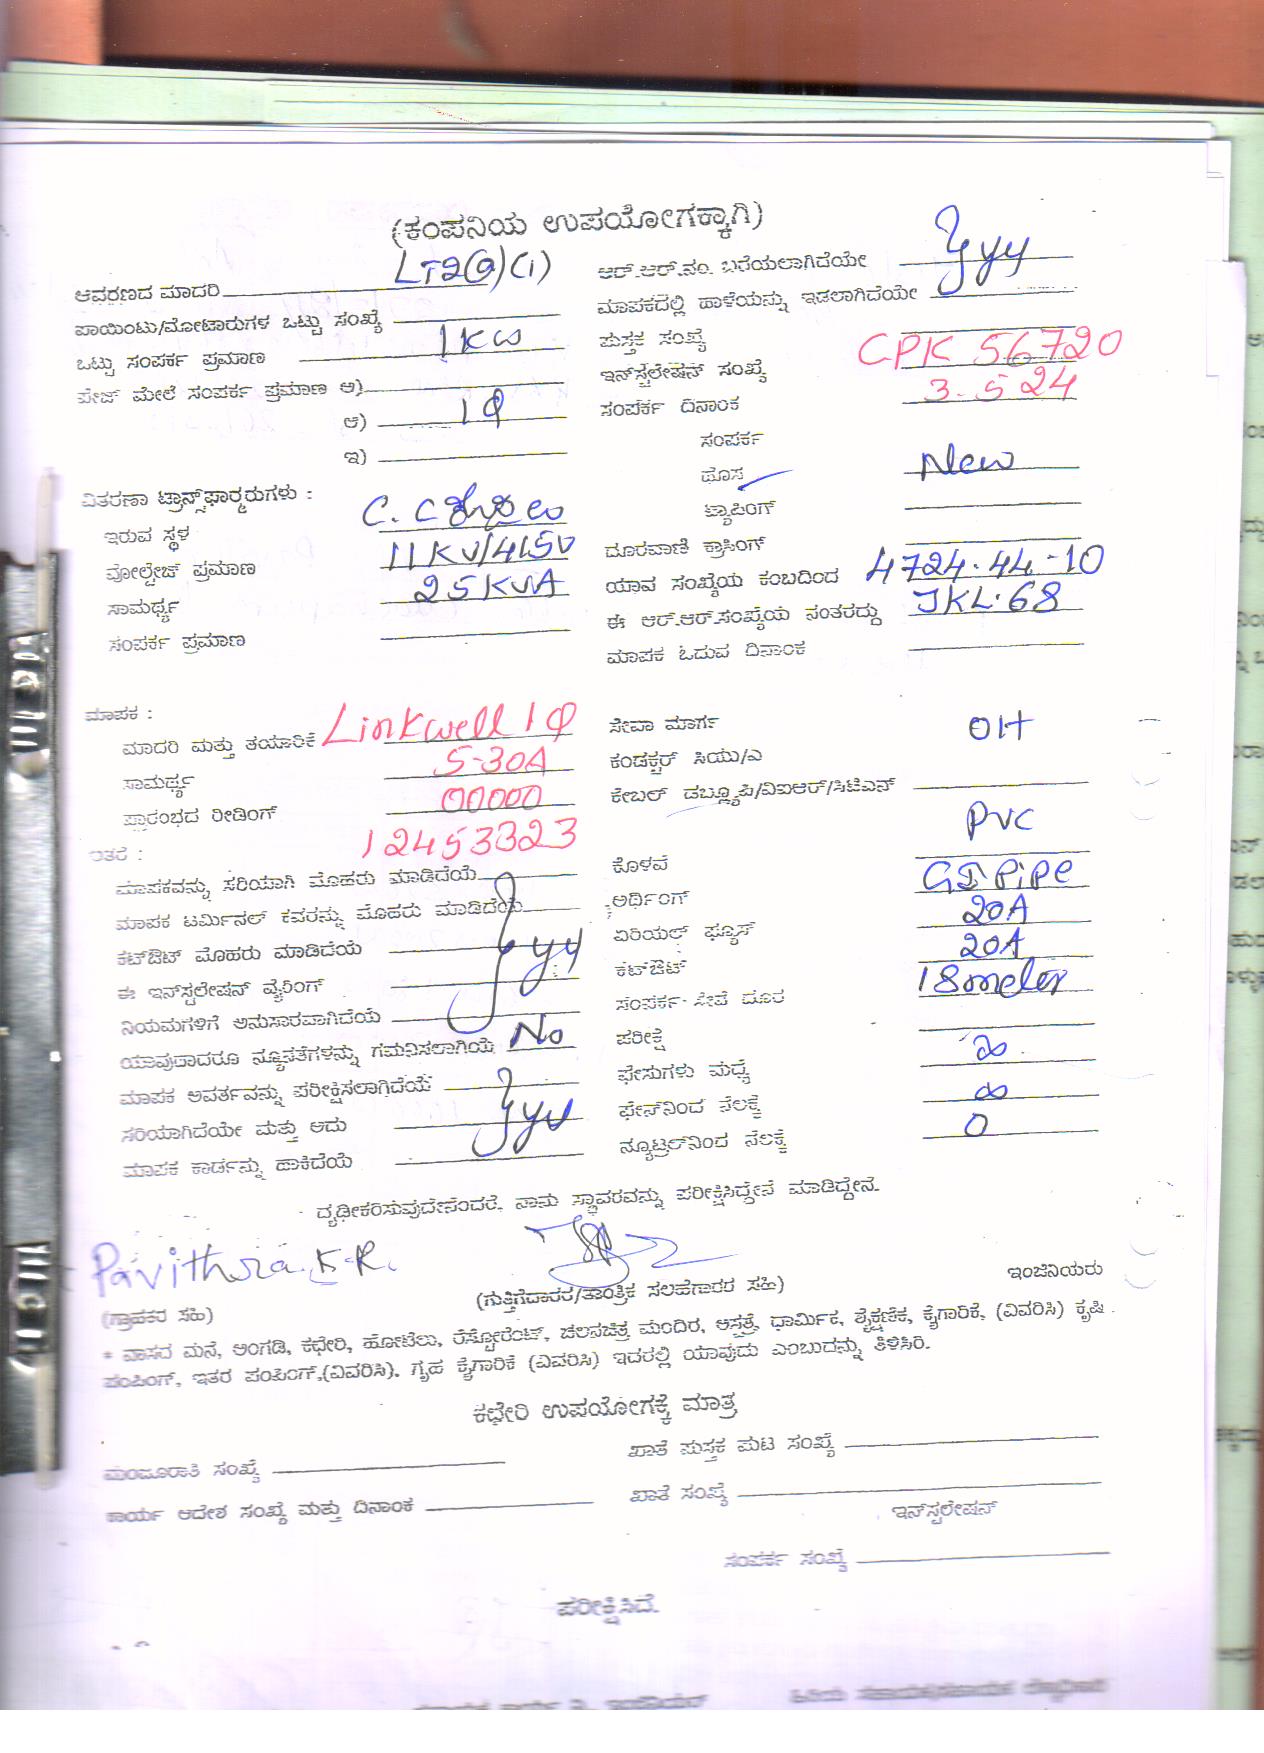 (ಕಂಪನಿಯ ಉಪಯೋಗಕ್ಕಾಗಿ)
ಆವರಣದ ಮಾದರಿ LT2(a)(i)
ಪಾಯಿಂಟು/ಮೋಟಾರುಗಳ ಒಟ್ಟು ಸಂಖ್ಯೆ
ಒಟ್ಟು ಸಂಪರ್ಕ ಪ್ರಮಾಣ 1KW
ಪೇಜ್ ಮೇಲೆ ಸಂಪರ್ಕ ಪ್ರಮಾಣ ಅ)
ಆ) 1φ
ಇ)
ವಿತರಣಾ ಟ್ರಾನ್ಸ್‌ಫಾರ್ಮರುಗಳು :
ಇರುವ ಸ್ಥಳ C. C
ವೋಲ್ಟೇಜ್ ಪ್ರಮಾಣ 11KV/415V
ಸಾಮರ್ಥ್ಯ 25KVA
ಸಂಪರ್ಕ ಪ್ರಮಾಣ
ಆರ್.ಆರ್.ನಂ. ಬರೆಯಲಾಗಿದೆಯೇ
ಮಾಪಕದಲ್ಲಿ ಹಾಳೆಯನ್ನು ಇಡಲಾಗಿದೆಯೇ
ಪುಸ್ತಕ ಸಂಖ್ಯೆ
ಇನ್‌ಸ್ಟಲೇಷನ್ ಸಂಖ್ಯೆ CPK 56720
ಸಂಪರ್ಕ ದಿನಾಂಕ 3.5.24
ಸಂಪರ್ಕ
ಹೊಸ New
ಟ್ಯಾಪಿಂಗ್
ದೂರವಾಣಿ ಕ್ರಾಸಿಂಗ್
ಯಾವ ಸಂಖ್ಯೆಯ ಕಂಬದಿಂದ 4724.44-10
ಈ ಆರ್.ಆರ್.ಸಂಖ್ಯೆಯ ನಂತರದ್ದು JKL.68
ಮಾಪಕ ಓದುವ ದಿನಾಂಕ
ಮಾಪಕ :
ಮಾದರಿ ಮತ್ತು ತಯಾರಿಕೆ Linkwell 1φ
ಸಾಮರ್ಥ್ಯ 5-30A
ಪ್ರಾರಂಭದ ರೀಡಿಂಗ್ 00000
ಇತರೆ : 12453323
ಮಾಪಕವನ್ನು ಸರಿಯಾಗಿ ಮೊಹರು ಮಾಡಿದೆಯೆ
ಮಾಪಕ ಟರ್ಮಿನಲ್ ಕವರನ್ನು ಮೊಹರು ಮಾಡಿದೆಯೆ
ಕಟ್‌ಔಟ್ ಮೊಹರು ಮಾಡಿದೆಯೆ
ಈ ಇನ್‌ಸ್ಟಲೇಷನ ವೈರಿಂಗ್
ನಿಯಮಗಳಿಗೆ ಅನುಸಾರವಾಗಿದೆಯೆ
ಯಾವುದಾದರೂ ನ್ಯೂನತೆಗಳನ್ನು ಗಮನಿಸಲಾಗಿಯೆ No
ಮಾಪಕ ಅವರ್ತವನ್ನು ಪರೀಕ್ಷಿಸಲಾಗಿದೆಯೆ
ಸರಿಯಾಗಿದೆಯೇ ಮತ್ತು ಅದು
ಮಾಪಕ ಕಾರ್ಡನ್ನು ಹಾಕಿದೆಯೆ
ಸೇವಾ ಮಾರ್ಗ OH
ಕಂಡಕ್ಟರ್ ಸಿಯು/ಎ
ಕೇಬಲ್ ಡಬ್ಲ್ಯೂಪಿ/ವಿಐಆರ್/ಸಿಟಿಎಸ್
ಕೊಳವೆ PVC
ಅರ್ಥಿಂಗ್ GI Pipe
ಏರಿಯಲ್ ಫ್ಯೂಸ್ 20A
ಕಟ್‌ಔಟ್ 20A
ಸಂಪರ್ಕ ಸೇವೆ ದೂರ 18meter
ಪರೀಕ್ಷೆ
ಫೇಸುಗಳು ಮಧ್ಯೆ ∞
ಫೇಸ್‌ನಿಂದ ನೆಲಕ್ಕೆ ∞
ನ್ಯೂಟ್ರಲ್‌ನಿಂದ ನೆಲಕ್ಕೆ 0
ದೃಢೀಕರಿಸುವುದೇನೆಂದರೆ, ನಾನು ಸ್ಥಾವರವನ್ನು ಪರೀಕ್ಷಿಸಿದ್ದೇನೆ ಮಾಡಿದ್ದೇನೆ.
Pavithra.K.R.
(ಗ್ರಾಹಕರ ಸಹಿ) (ಗುತ್ತಿಗೆದಾರರ/ತಾಂತ್ರಿಕ ಸಲಹೆಗಾರರ ಸಹಿ) ಇಂಜಿನಿಯರು
* ವಾಸದ ಮನೆ, ಅಂಗಡಿ, ಕಛೇರಿ, ಹೋಟೆಲು, ರೆಸ್ಟೋರೆಂಟ್, ಚಲನಚಿತ್ರ ಮಂದಿರ, ಆಸ್ಪತ್ರೆ, ಧಾರ್ಮಿಕ, ಶೈಕ್ಷಣಿಕ, ಕೈಗಾರಿಕೆ, (ವಿವರಿಸಿ) ಕೃಷಿ
ಪಂಪಿಂಗ್, ಇತರ ಪಂಪಿಂಗ್,(ವಿವರಿಸಿ). ಗೃಹ ಕೈಗಾರಿಕೆ (ವಿವರಿಸಿ) ಇದರಲ್ಲಿ ಯಾವುದು ಎಂಬುದನ್ನು ತಿಳಿಸಿರಿ.
ಕಛೇರಿ ಉಪಯೋಗಕ್ಕೆ ಮಾತ್ರ
ಮಂಜೂರಾತಿ ಸಂಖ್ಯೆ
ಖಾತೆ ಪುಸ್ತಕ ಪುಟ ಸಂಖ್ಯೆ
ಕಾರ್ಯ ಆದೇಶ ಸಂಖ್ಯೆ ಮತ್ತು ದಿನಾಂಕ
ಖಾತೆ ಸಂಖ್ಯೆ
ಇನ್‌ಸ್ಟಲೇಷನ್
ಸಂಪರ್ಕ ಸಂಖ್ಯೆ
ಪರೀಕ್ಷಿಸಿದೆ.